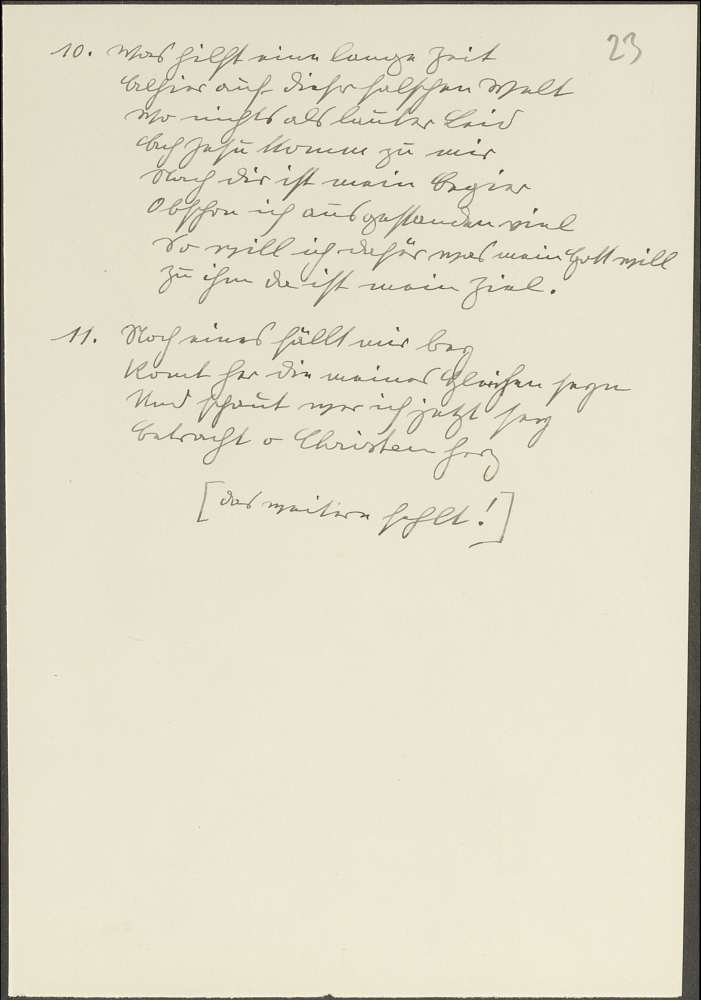 23
10. Was hilft eine lange Zeit
allhier auf dieser falschen Welt
Wo nichts als lauter Leid
Ach Jesu komm zu mir
Nach dir ist mein Begier
Obschon ich ausgestanden viel
So will ich dafür was mein Gott will
zu ihm da ist mein Ziel.
11. Noch eines fällt mir bey
Komt her die meines Gleichen seyn
Und schaut wer ich jetzt sey
betracht o Christen Herz
[das weitere fehlt!]